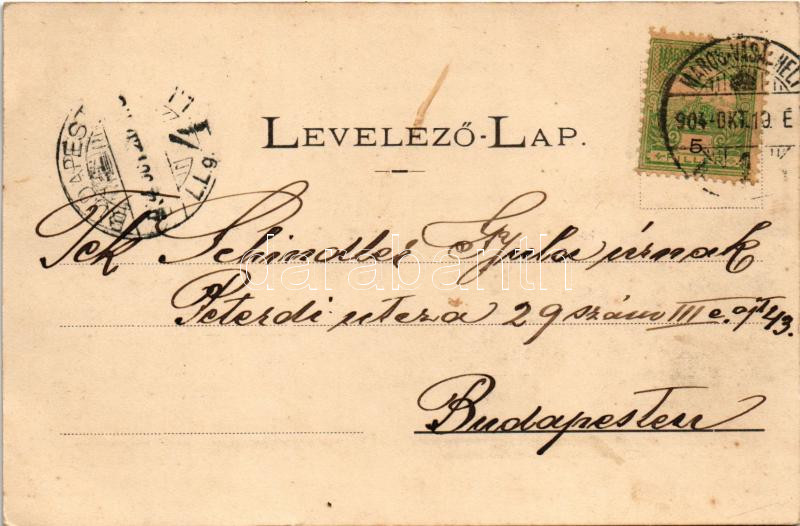 LEVELEZŐ-LAP.
MAROS-VÁSÁRHELY
904 OKT. 19. É
5
BUDAPEST
4
Tek Schindler Gyula úrnak
Péterdi utcza 29 szám III e. ajt 43.
Budapesten
darabanth